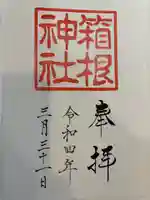 奉拝
箱根
神社
令和四年
三月三十一日